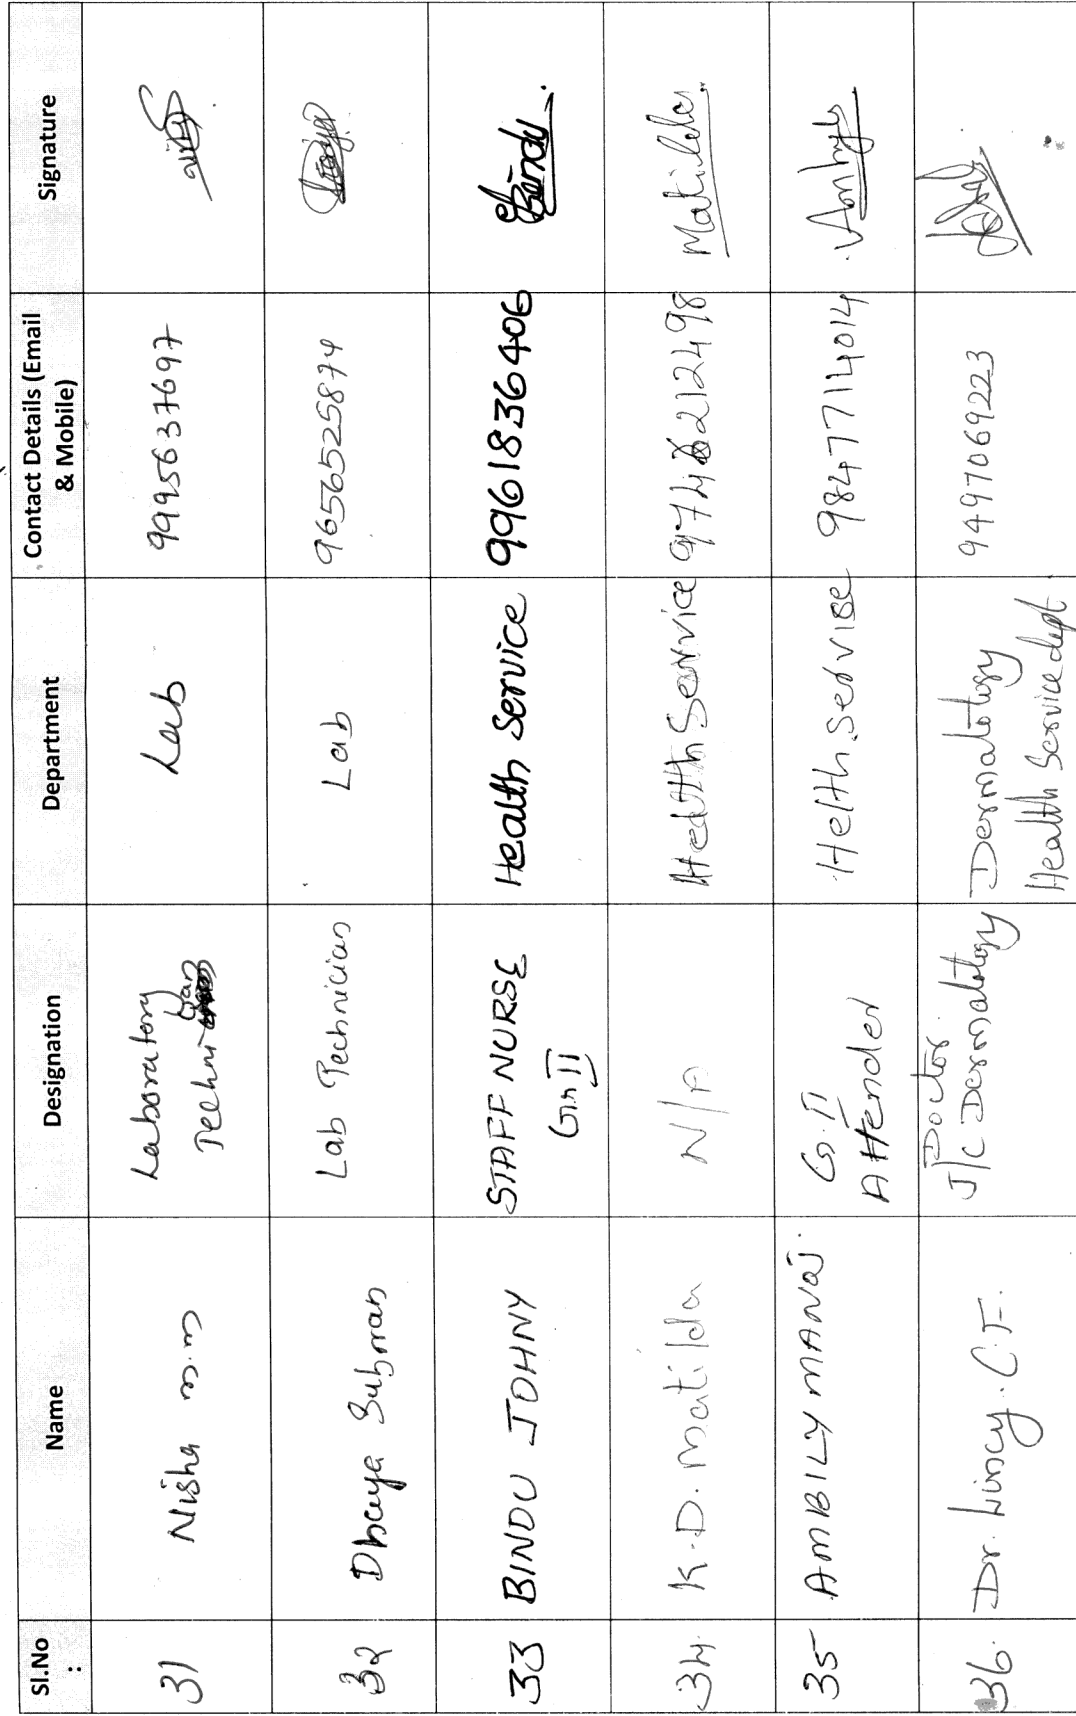 Sl.No : Name Designation Department Contact Details (Email & Mobile) Signature
31 Nisha m.m Laboratory Technician Lab 9995637697
32 Dhanya Subran Lab Technician Lab 9656525874
33 BINDU JOHNY STAFF NURSE Gr II Health Service 9961836406 Bindu
34. K.D. Matilda N/A Health Service Matilda.
35 AMBILY MANOJ. G.II Attender Helth.servise 9847714014 Ambily
36. Dr. Lincy. C.F. Doctor. J/C Dermatology Dermatology Health Service dept. 9497069223